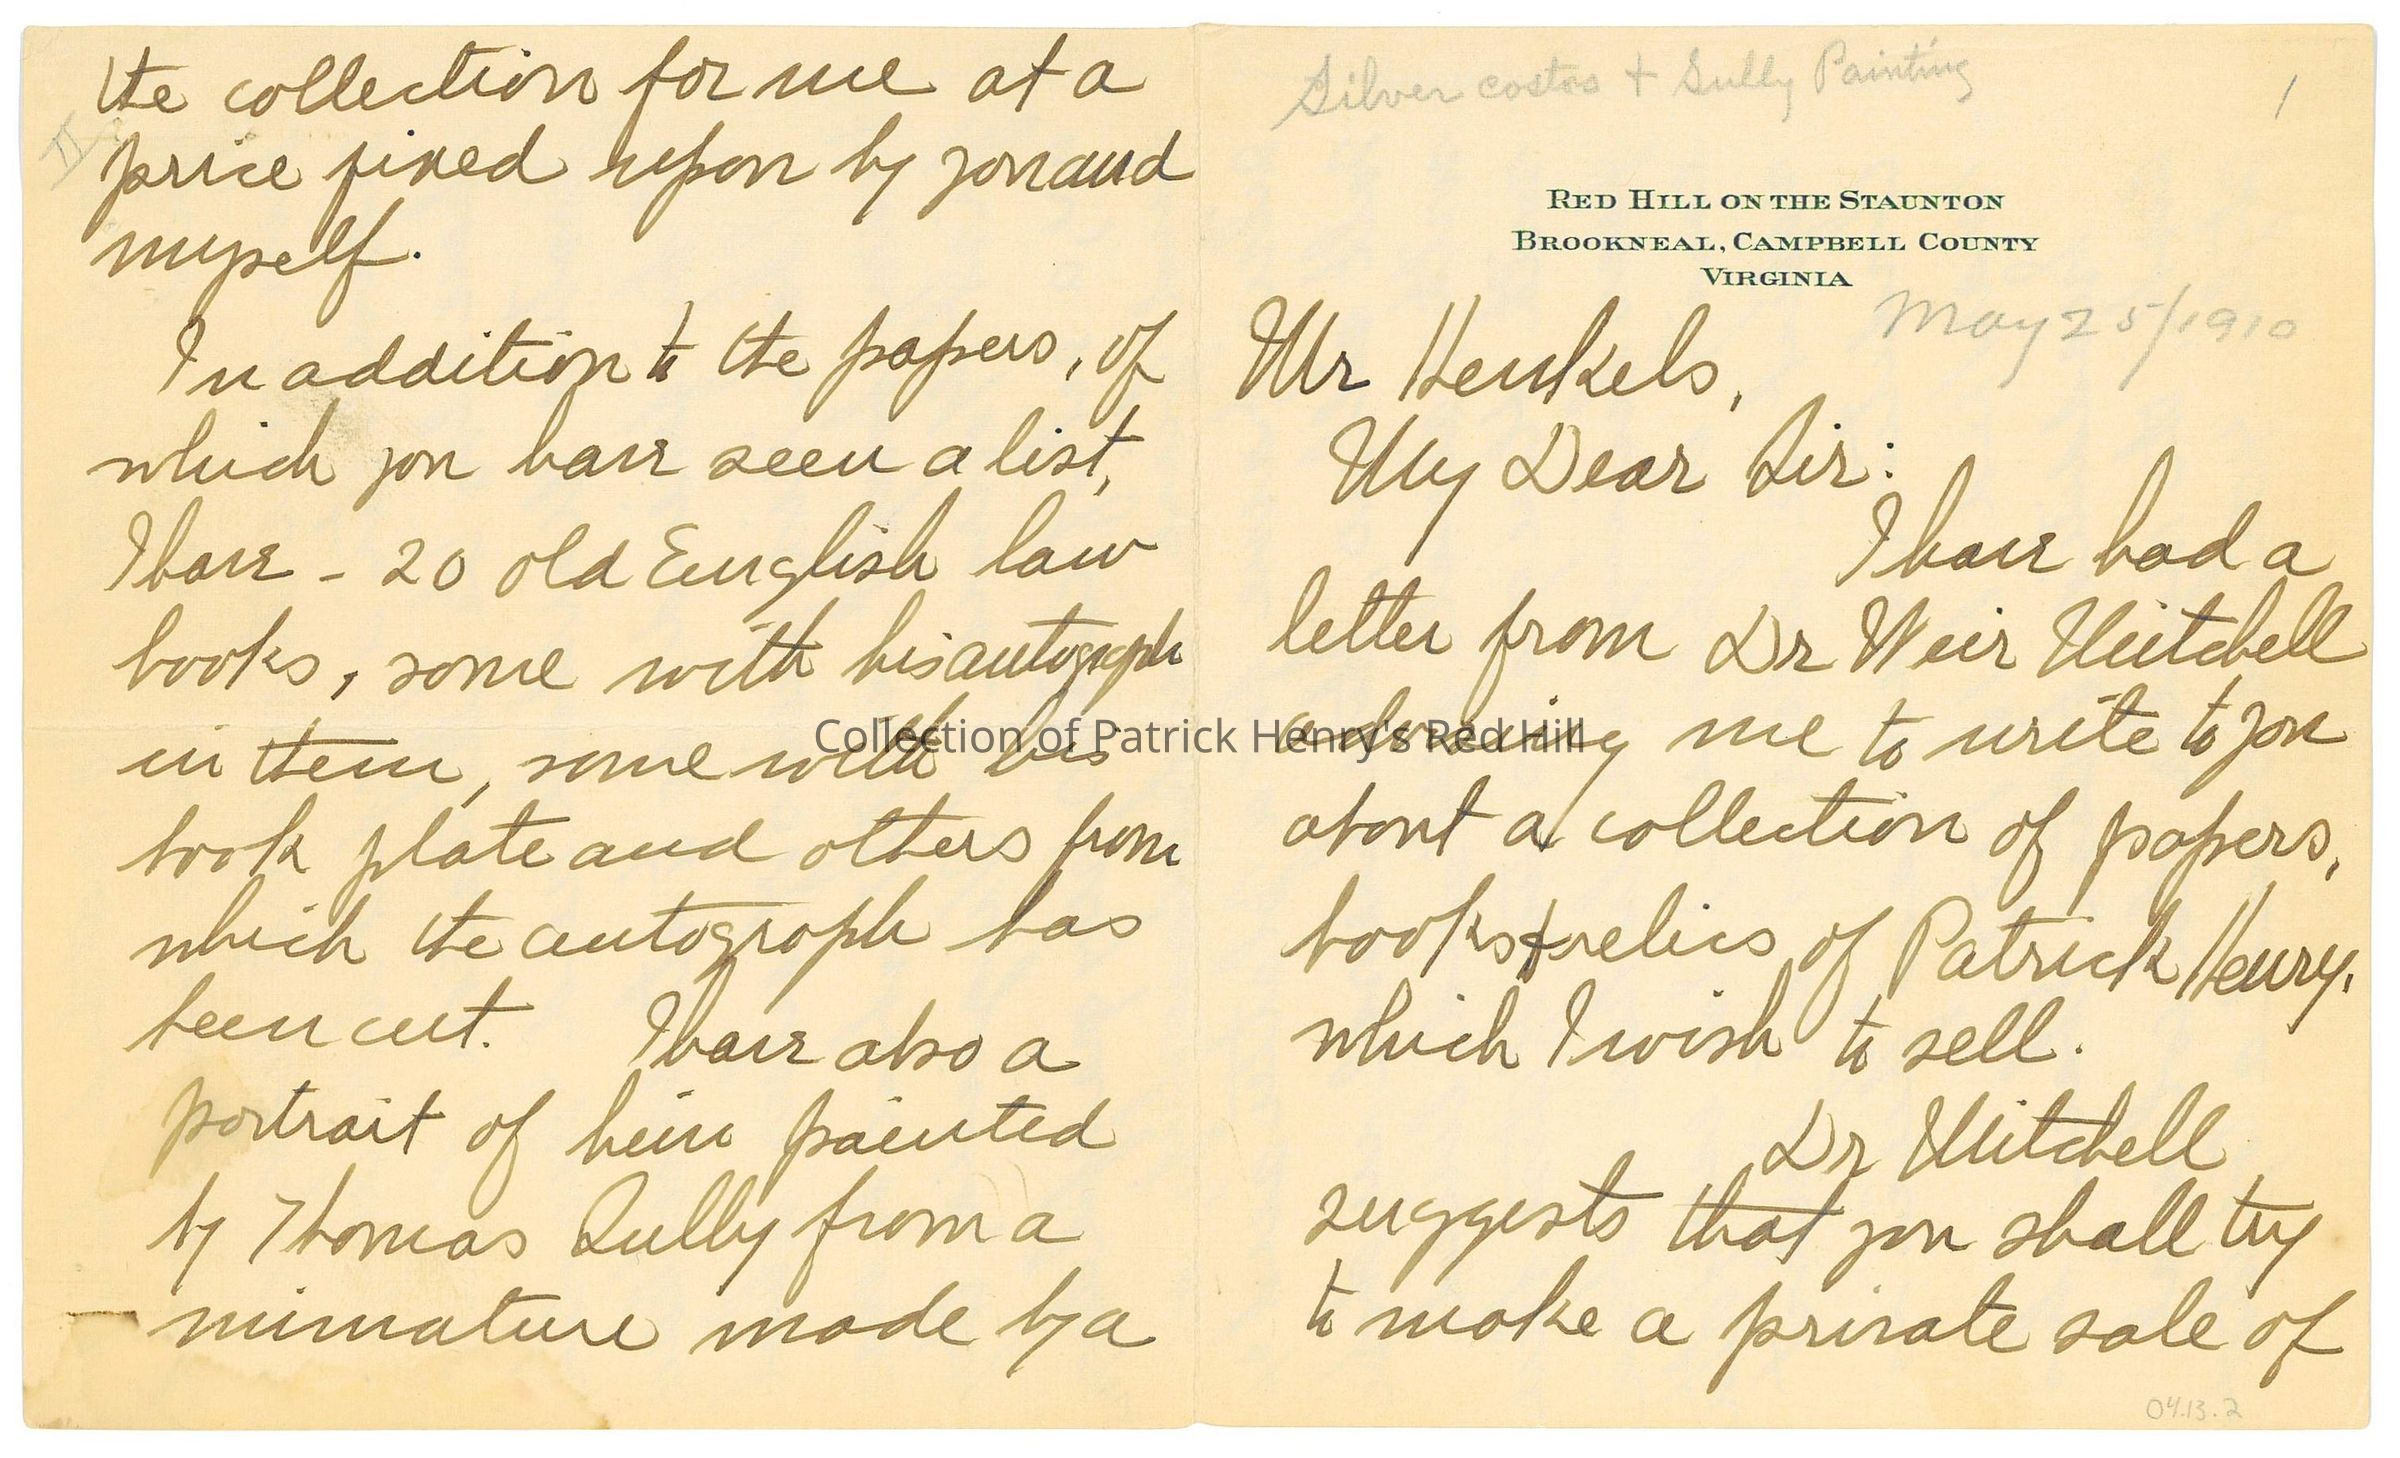 Silver costas + Sully Painting
1
RED HILL ON THE STAUNTON
BROOKNEAL, CAMPBELL COUNTY
VIRGINIA
May 25/1910
Mr Henkels,
My Dear Sir:
I have had a
letter from Dr Weir Mitchell
advising me to write to you
about a collection of papers,
books & relics of Patrick Henry,
which I wish to sell.
Dr Mitchell
suggests that you shall try
to make a private sale of
04.13.2
II
the collection for me at a
price fixed upon by you and
myself.
In addition to the papers, of
which you have seen a list,
I have - 20 old English law
books, some with his autograph
in them, some with his
book plate and others from
which the autograph has
been cut. I have also a
portrait of him painted
by Thomas Sully from a
mimature made by a
Collection of Patrick Henry's Red Hill